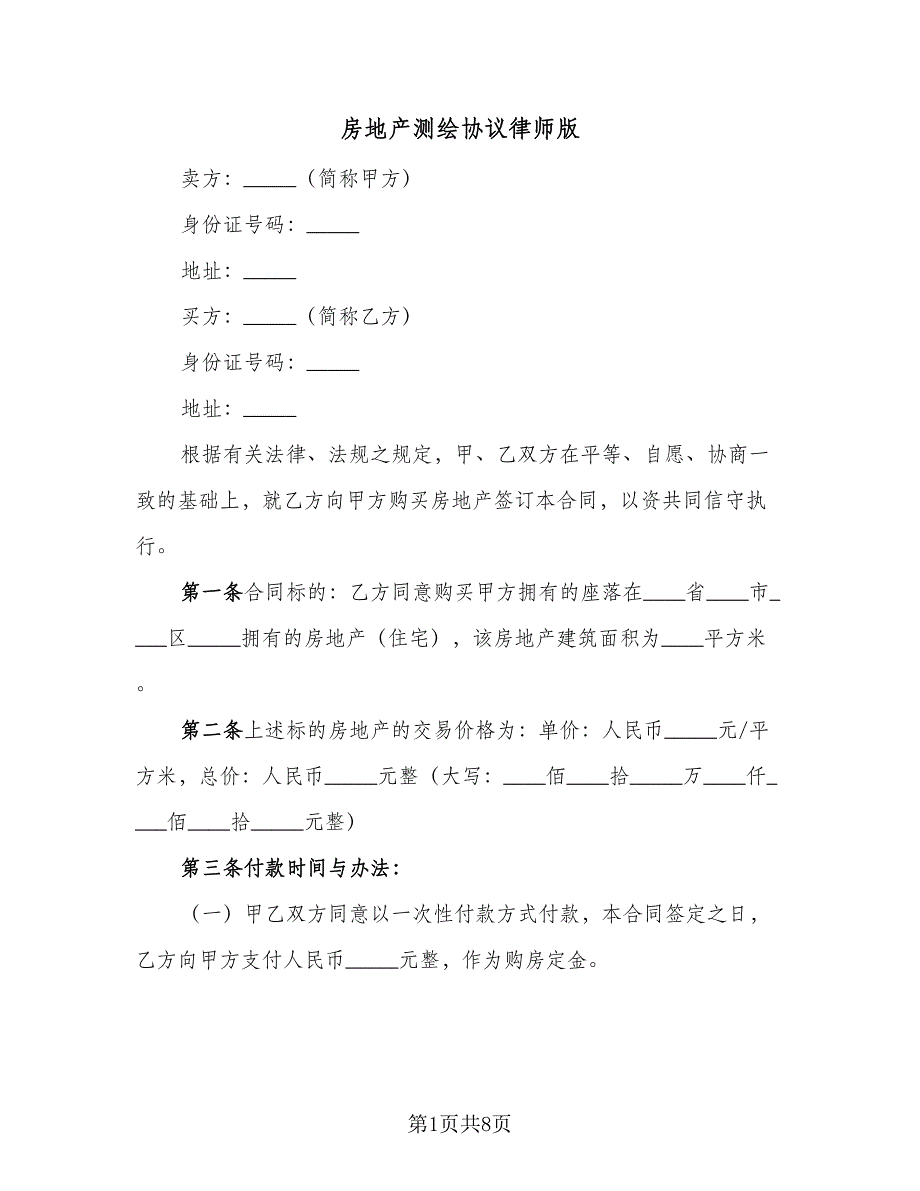 房地产测绘协议律师版
卖方：_____（简称甲方）
身份证号码：_____
地址：_____
买方：_____（简称乙方）
身份证号码：_____
地址：_____
根据有关法律、法规之规定，甲、乙双方在平等、自愿、协商一
致的基础上，就乙方向甲方购买房地产签订本合同，以资共同信守执
行。
第一条合同标的：乙方同意购买甲方拥有的座落在____省____市_
___区_____拥有的房地产（住宅），该房地产建筑面积为____平方米
。
第二条上述标的房地产的交易价格为：单价：人民币_____元/平
方米，总价：人民币_____元整（大写：____佰____拾_____万____仟_
___佰____拾_____元整）
第三条付款时间与办法：
（一）甲乙双方同意以一次性付款方式付款，本合同签定之日，
乙方向甲方支付人民币_____元整，作为购房定金。
第1页共8页